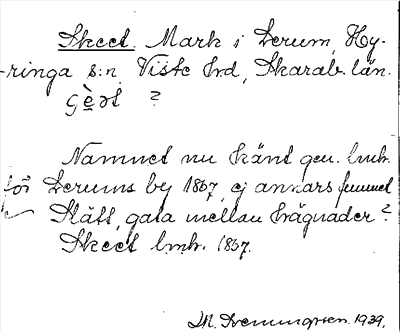 Skeet. Mark i Lerum, Hy-
-ringa s:n, Viste hrd, Skarab. län.
Namnet nu känt gen. lmh.
för Lerums by 1867, ej annars funnet
Slätt, gata mellan hägnader?
Skeet lmh. 1867.
M. 1939.